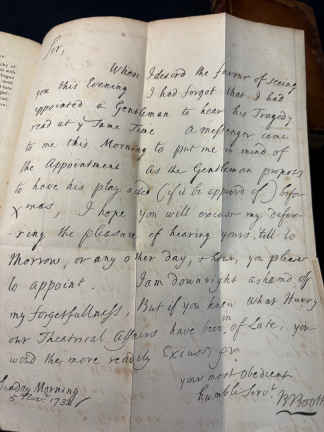 Sir,
When I desired the favour of seeing
you this Evening I had forgot that I had
appointed a Gentleman to hear his Tragedy
read at ye Same Time A messenger came
to me this Morning to put me in mind of
the Appointment As the Gentleman proposes
to have his play acted (if it be approv'd of) before
Xmas, I hope you will excuse my defer-
ring the pleasure of hearing yours, till to
Morrow, or any other day, & hour, you please
to appoint. I am downright asham'd of
my forgetfullness, But if you knew what Hurry
our Theatrical Affairs have been in of Late, you
wou'd the more readily Excuse, Sr.
your most Obedient
humble Servt.
BBooth
Sunday Morning
5 1732